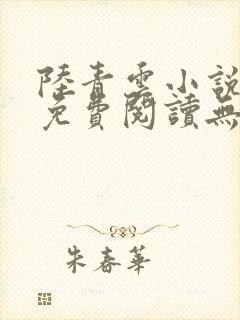 陸青雲小說
免費閱讀無
朱春華